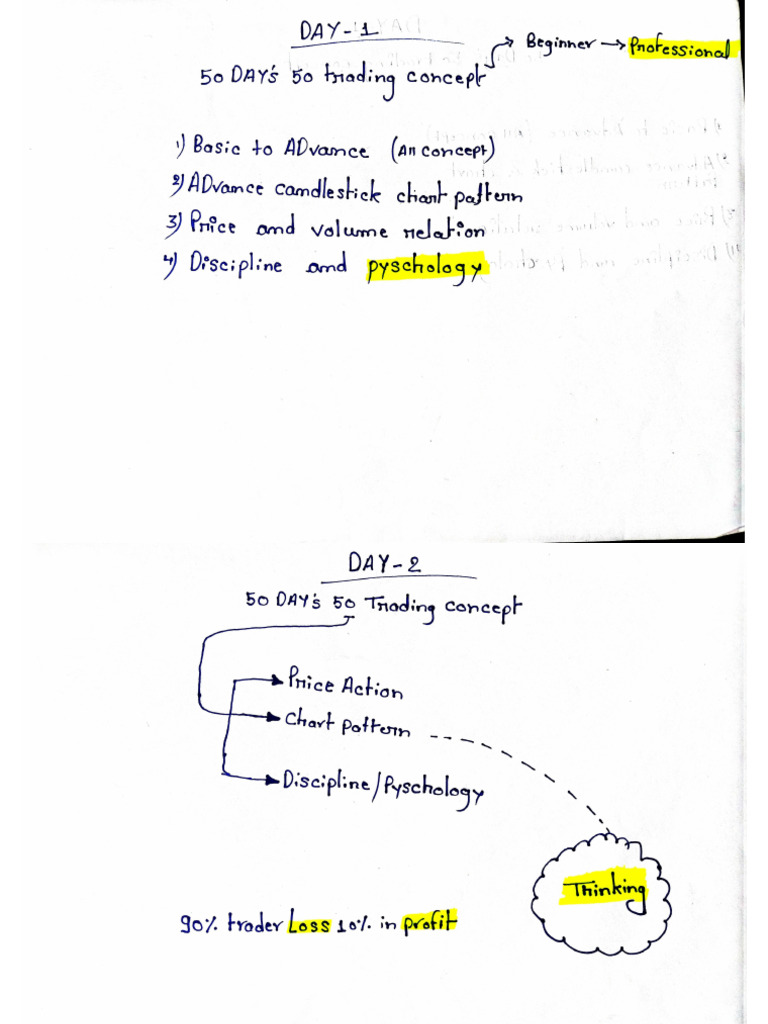 DAY-1
50 DAY's 50 trading concept → Beginner → Professional
1) Basic to ADvance (An concept)
2) ADvance candlestick chart pattern
3) Price and volume relation
4) Discipline and pyschology
DAY-2
50 DAY's 50 Trading concept
Price Action
Chart pattern
Discipline/Pyschology
Thinking
90% trader Loss 10% in profit